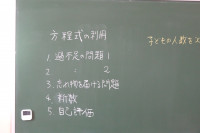 方程式の利用
1. 過不足の問題1
2. 〃 2
3. 忘れ物を届ける問題
4. 整数
5. 自己評価
子どもの人数をx